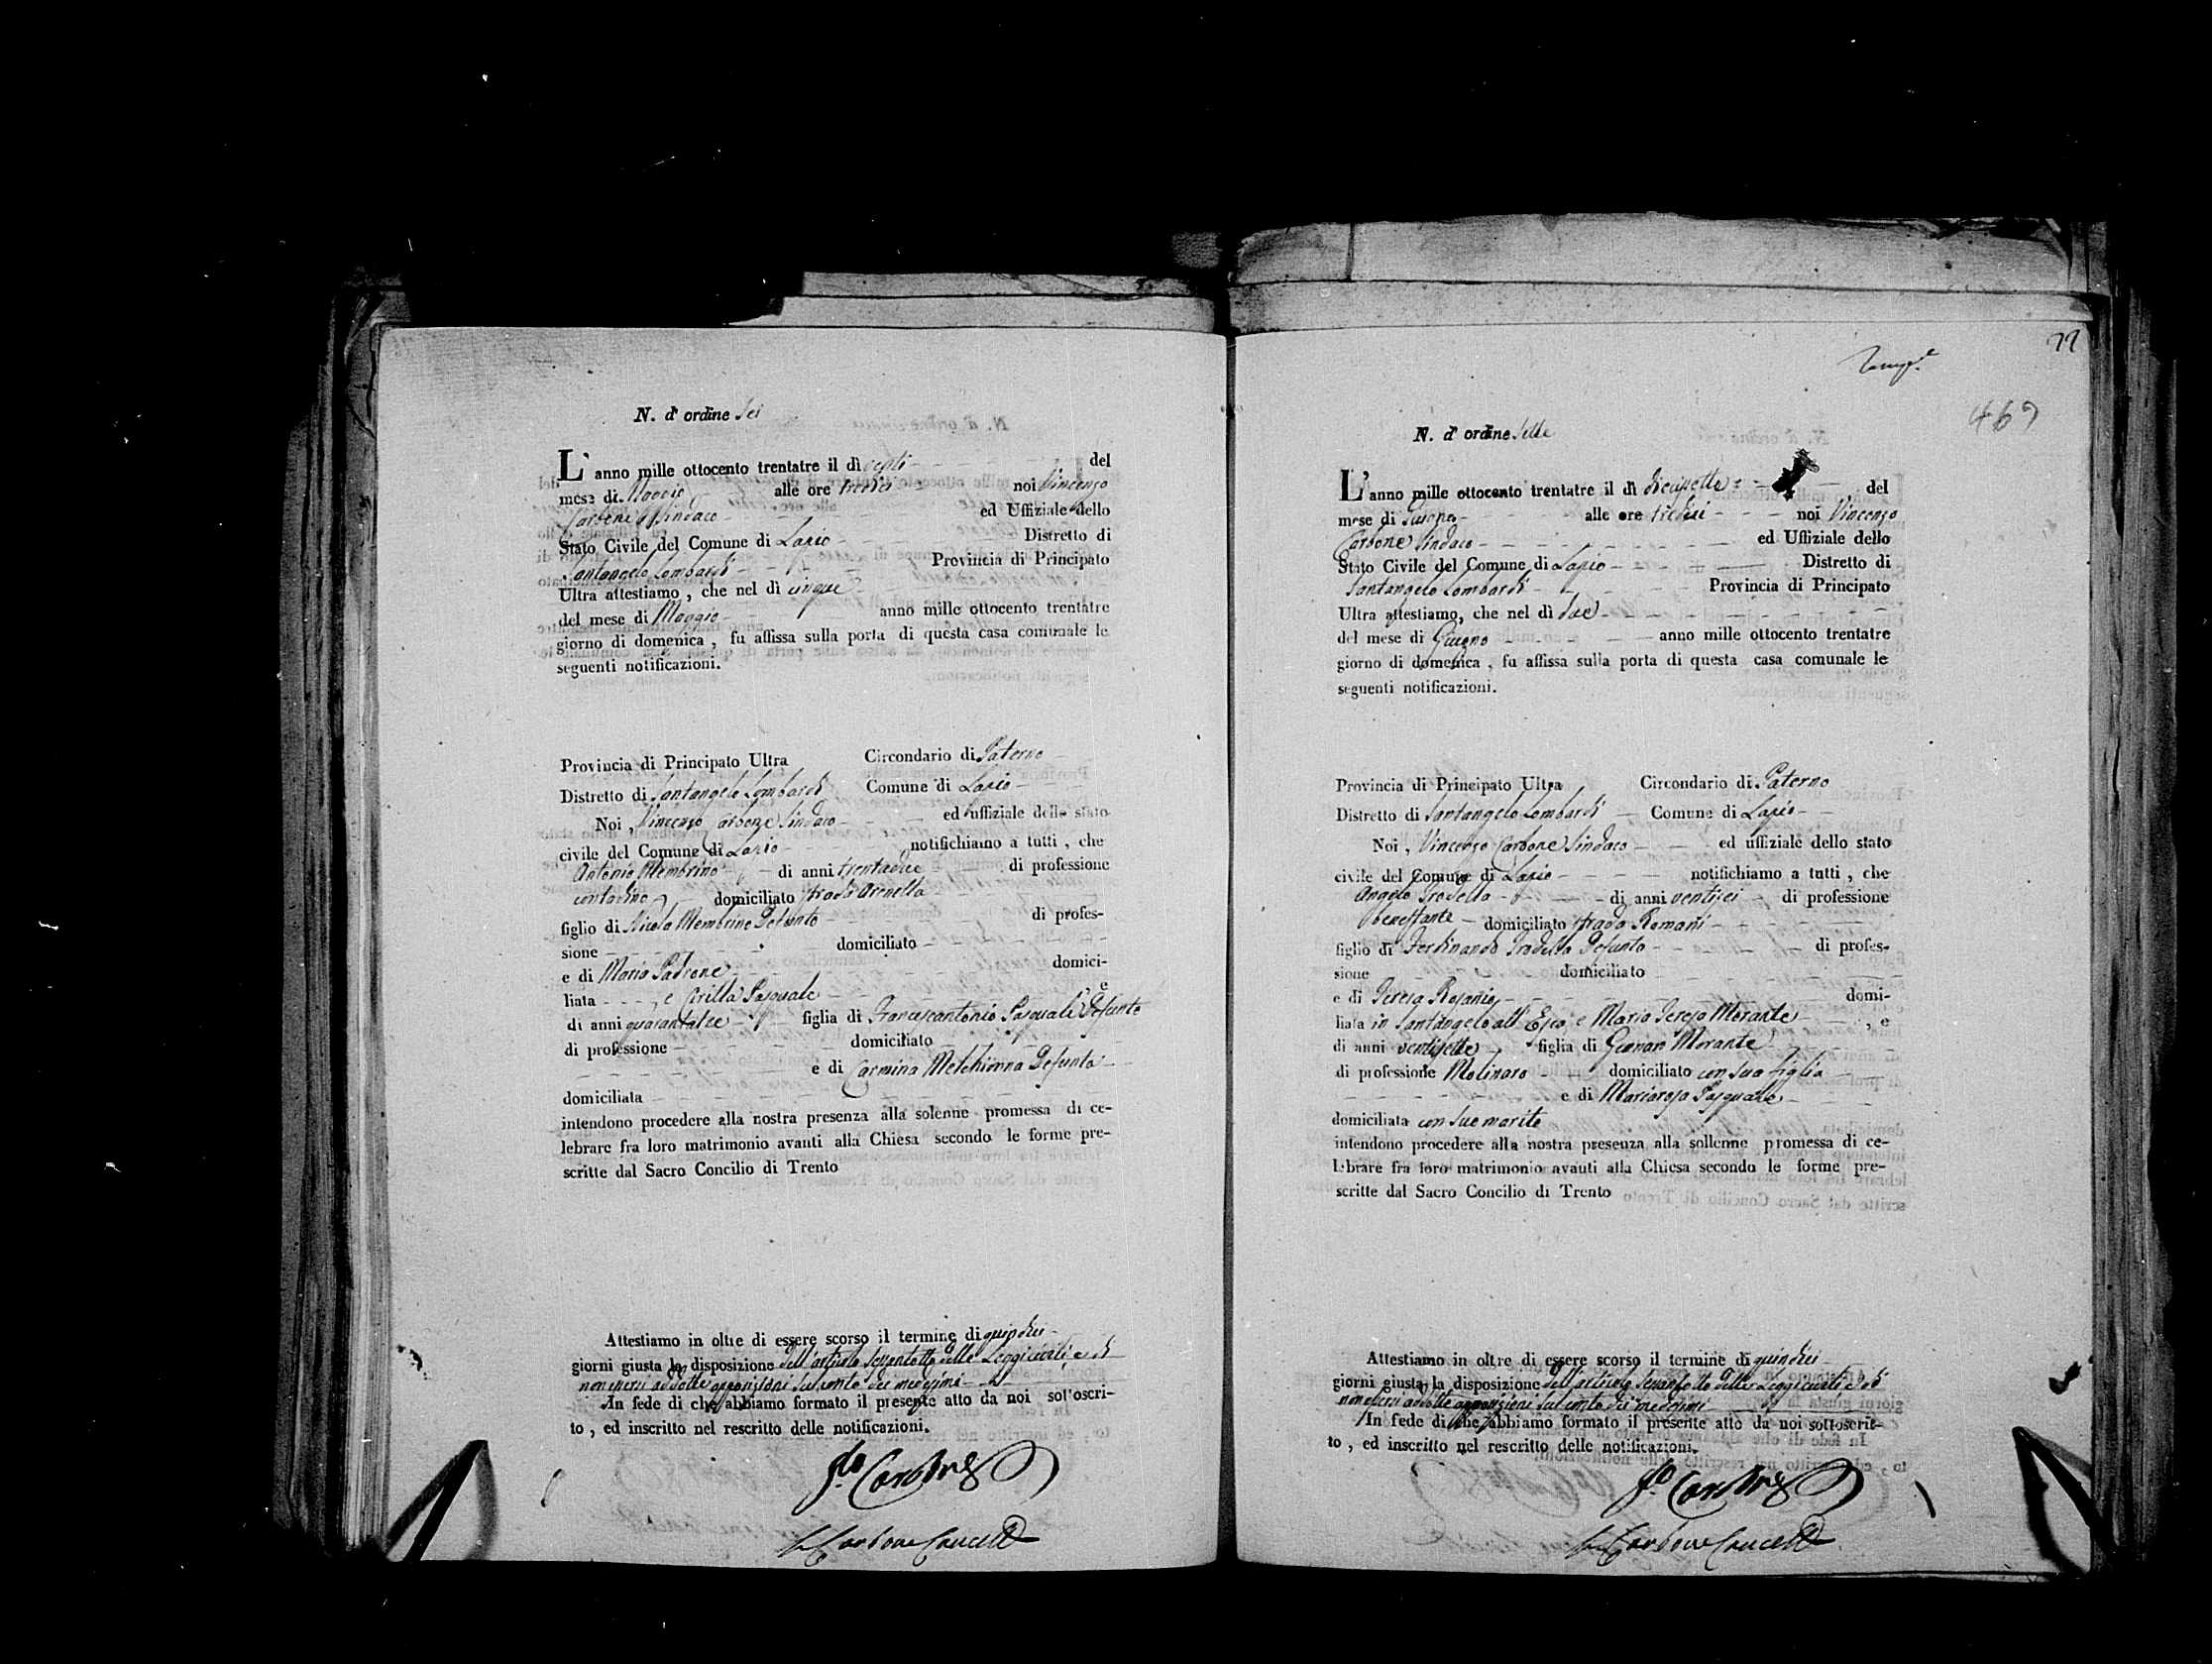 N. d'ordine Sei
L'anno mille ottocento trentatre il dì venti del
mese di Maggio alle ore tredici noi Vincenzo
Carbone Sindaco ed Uffiziale dello
Stato Civile del Comune di Lapio Distretto di
Santangelo Lombardi Provincia di Principato
Ultra attestiamo, che nel dì cinque
del mese di Maggio anno mille ottocento trentatre
giorno di domenica, fu affissa sulla porta di questa casa comunale le
seguenti notificazioni.
Provincia di Principato Ultra Circondario di Paterno
Distretto di Santangelo Lombardi Comune di Lapio
Noi, Vincenzo Carbone Sindaco ed uffiziale dello stato
civile del Comune di Lapio notifichiamo a tutti, che
Antonio Membrino di anni trentadue di professione
contadino domiciliato strada Arenella
figlio di Nicola Membrino Defunto di profes-
sione domiciliato
e di Maria Padrone domici-
liata , e Cirilla Pasquale , e
di anni quarantatre figlia di Francescantonio Pasquale Defunto
di professione domiciliato
e di Carmina Melchionna Defunta
domiciliata
intendono procedere alla nostra presenza alla solenne promessa di ce-
lebrare fra loro matrimonio avanti alla Chiesa secondo le forme pre-
scritte dal Sacro Concilio di Trento
Attestiamo in oltre di essere scorso il termine di quindici
giorni giusta la disposizione dell'articolo Settantotto delle Leggi civili, e di
non essersi addotte opposizioni sul conto dei medesimi
In fede di che abbiamo formato il presente atto da noi sottoscri-
to, ed inscritto nel rescritto delle notificazioni.
Carbone
Carbone Cancell
77
469
N. d'ordine Sette
L'anno mille ottocento trentatre il dì diecisette del
mese di Giugno alle ore tredici noi Vincenzo
Carbone Sindaco ed Uffiziale dello
Stato Civile del Comune di Lapio Distretto di
Santangelo Lombardi Provincia di Principato
Ultra attestiamo, che nel dì due
del mese di Giugno anno mille ottocento trentatre
giorno di domenica, fu affissa sulla porta di questa casa comunale le
seguenti notificazioni.
Provincia di Principato Ultra Circondario di Paterno
Distretto di Santangelo Lombardi Comune di Lapio
Noi, Vincenzo Carbone Sindaco ed uffiziale dello stato
civile del Comune di Lapio notifichiamo a tutti, che
Angelo Trodella di anni ventisei di professione
benestante domiciliato strada Romani
figlio di Ferdinando Trodella Defunto di profes-
sione domiciliato
e di Teresa Rosania domi-
liata in Santangelo all'Esca, e Maria Teresa Morante , e
di anni ventisette figlia di Gennaro Morante
di professione Molinaro domiciliato con sua figlia
e di Mariarosa Pasquale
domiciliata con suo marito
intendono procedere alla nostra presenza alla sollenne promessa di ce-
lebrare fra loro matrimonio avanti alla Chiesa secondo le forme pre-
scritte dal Sacro Concilio di Trento
Attestiamo in oltre di essere scorso il termine di quindici
giorni giusta la disposizione dell'articolo Settantotto delle Leggi civili e di
non essersi addotte opposizioni sul conto dei medesimi
In fede di che abbiamo formato il presente atto da noi sottoscrit-
to, ed inscritto nel rescritto delle notificazioni.
Carbone
Carbone Cancell